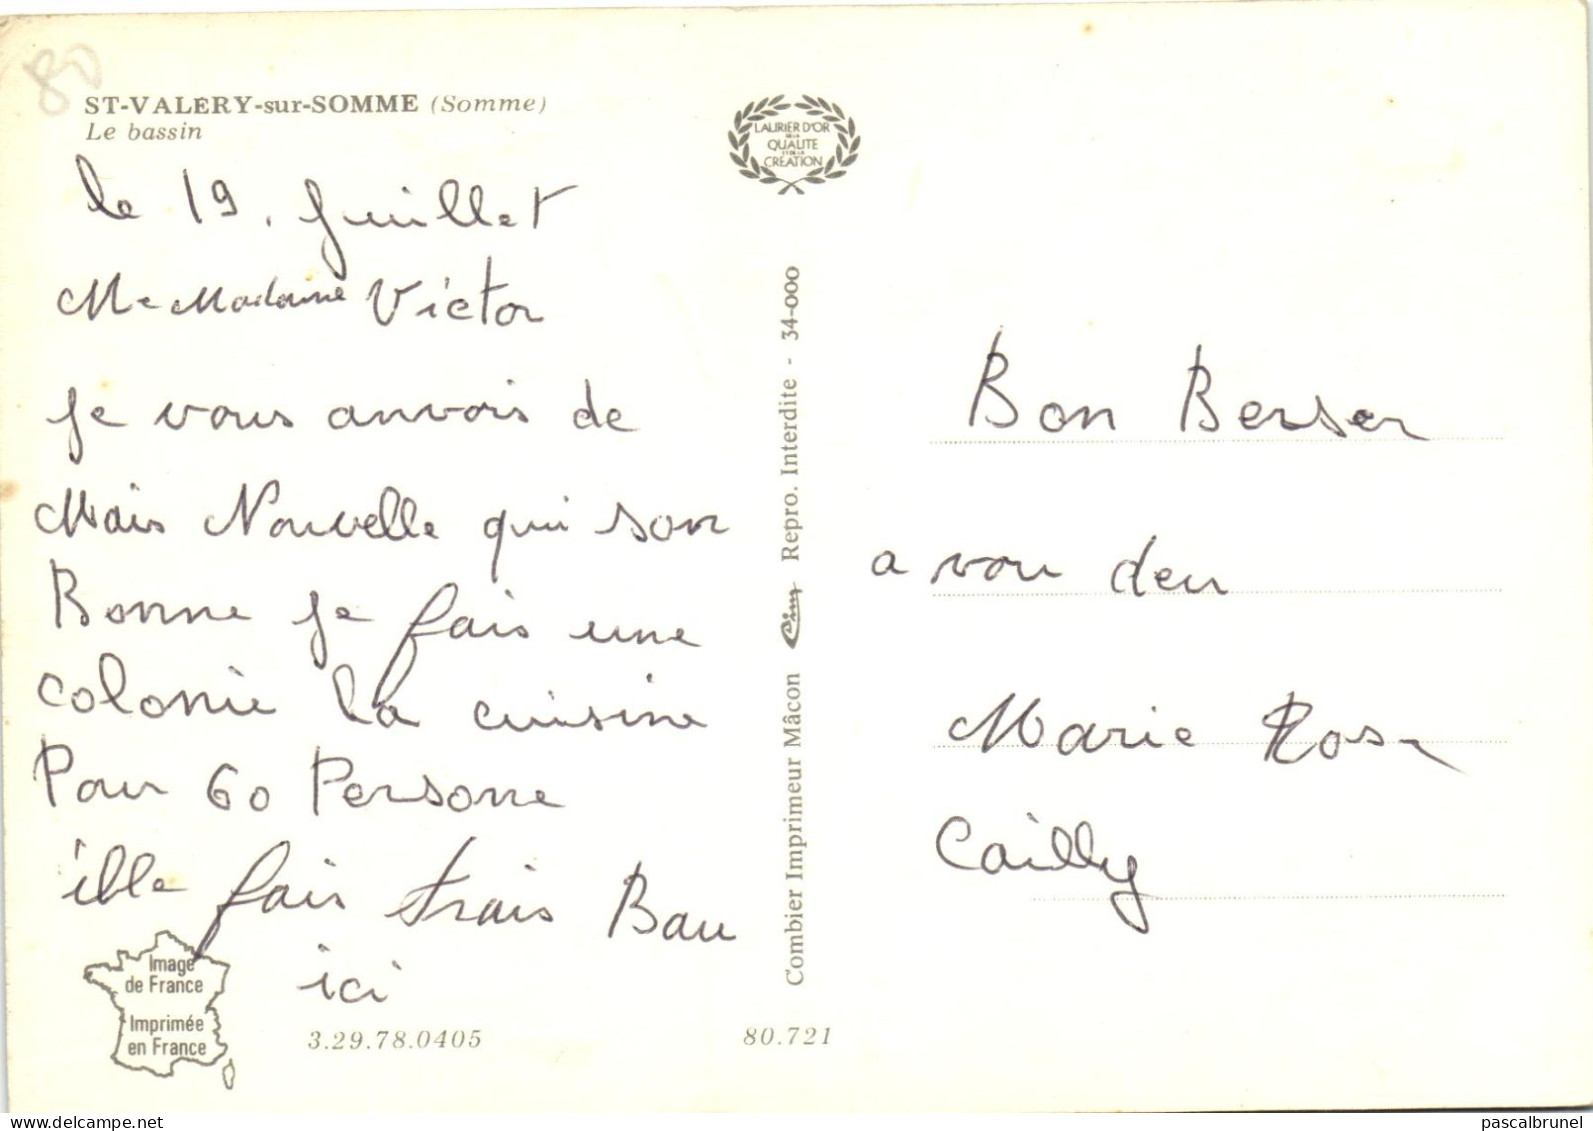 80
ST-VALERY-sur-SOMME (Somme)
Le bassin
le 19. Juillet
M e Madame Victor
Je vous anvois de
Mais Nouvelle qui son
Bonne Je fais une
colonie la cuisine
Pour 60 Persone
ille fais trais Bau
ici
Image
de France
Imprimée
en France
3.29.78.0405
80.721
LAURIER D'OR
DE LA
QUALITE
ET DE LA
CREATION
Combier Imprimeur Mâcon Cim Repro. Interdite - 34-000
Bon Berser
a vou deu
Marie Rose
Cailly
www.delcampe.net
pascalbrunel